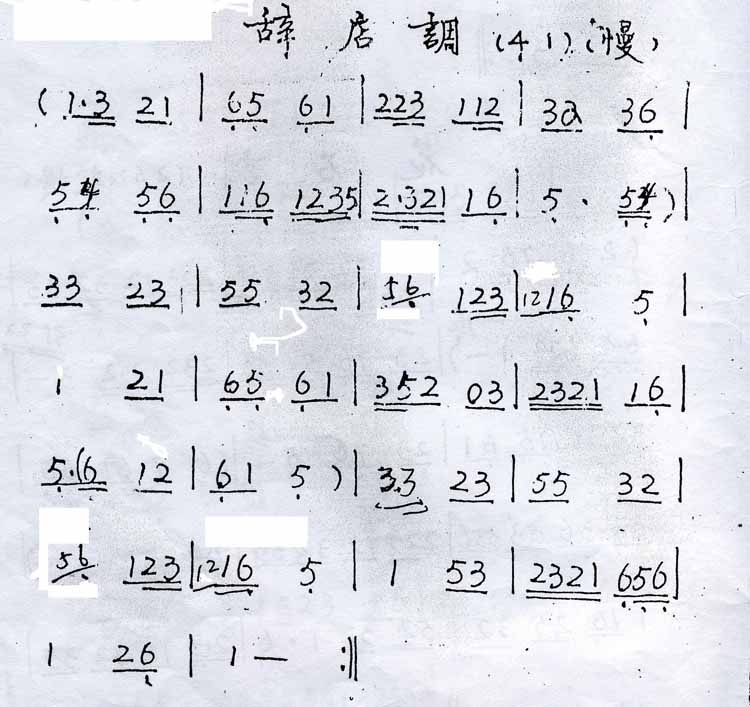 辞店調(41)(慢)
(1·3 21 | 65 61 | 223 112 | 32 36 |
54 56 | 1116 1235 | 2·321 16 | 5· 54) |
33 23 | 55 32 | 56 123 | 1216 5 |
1 21 | 65 61 | 352 03 | 2321 16 |
5·(6 12 | 61 5) | 33 23 | 55 32 |
56 123 | 1216 5 | 1 53 | 2321 656 |
1 26 | 1 — :||